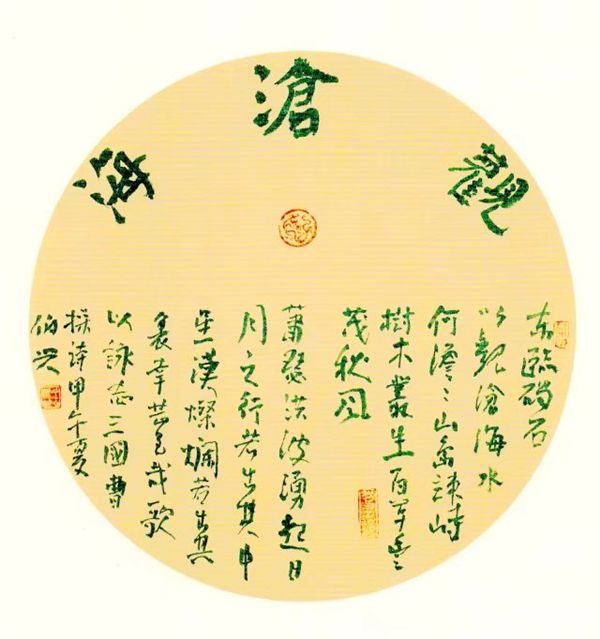 觀滄海
東臨碣石
以觀滄海水
何澹〻山島竦峙
樹木叢生百草豐
茂秋風
蕭瑟洪波湧起日
月之行若出其中
星漢燦爛若出其
裏幸甚至哉歌
以詠志三國曹
操詩甲午夏
伯兴